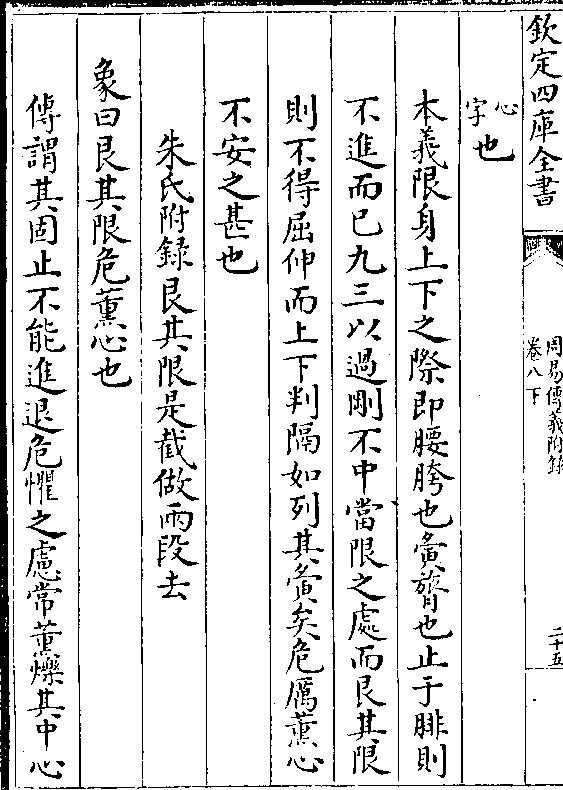 欽定四庫全書
周易傳義附錄
卷八下
二十五
心
字
也
本義限身上下之際即腰胯也夤膂也止于腓則
不進而已九三以過剛不中當限之處而艮其限
則不得屈伸而上下判隔如列其夤矣危厲薫心
不安之甚也
朱氏附錄艮其限是截做兩段去
象曰艮其限危薫心也
傳謂其固止不能進退危懼之慮常薫爍其中心